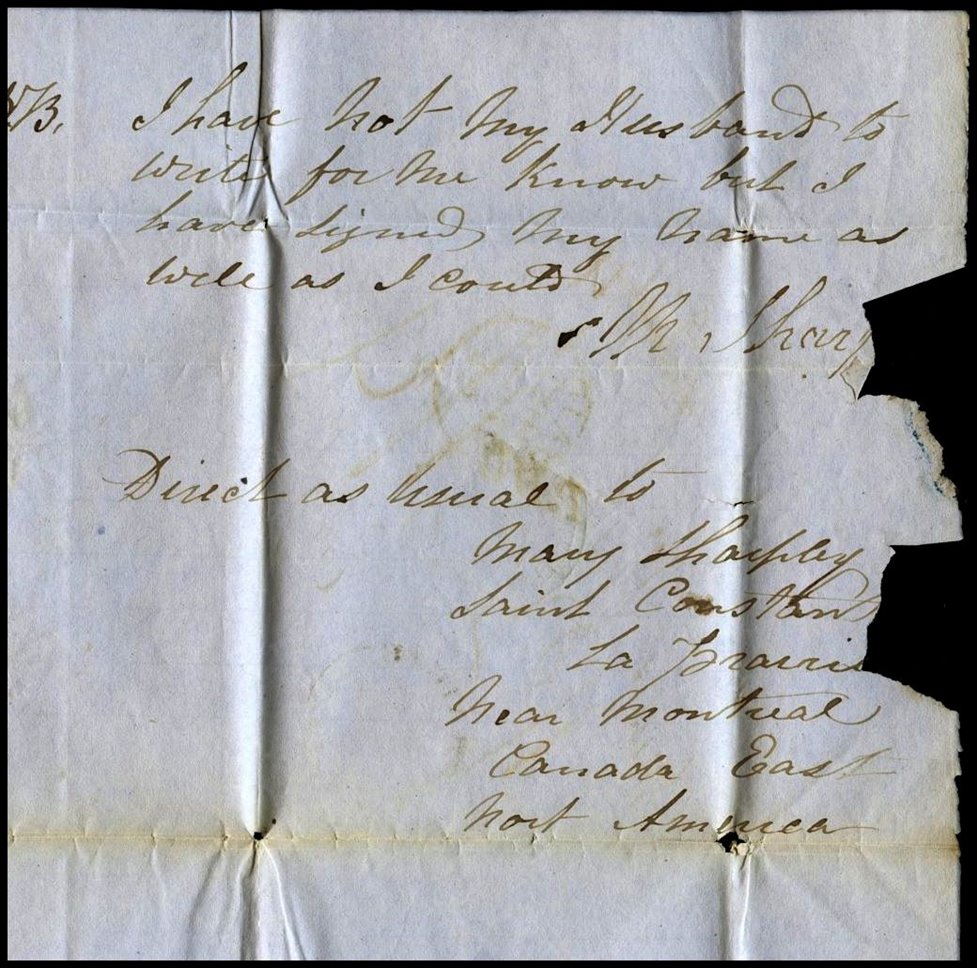 NB. I have not my Husband to
write for me know but I
have signed my name as
well as I could
M. Sharp
Direct as usual to
Mary Sharpley
Saint Constant
La Prairie
Near Montreal
Canada East
Nort America